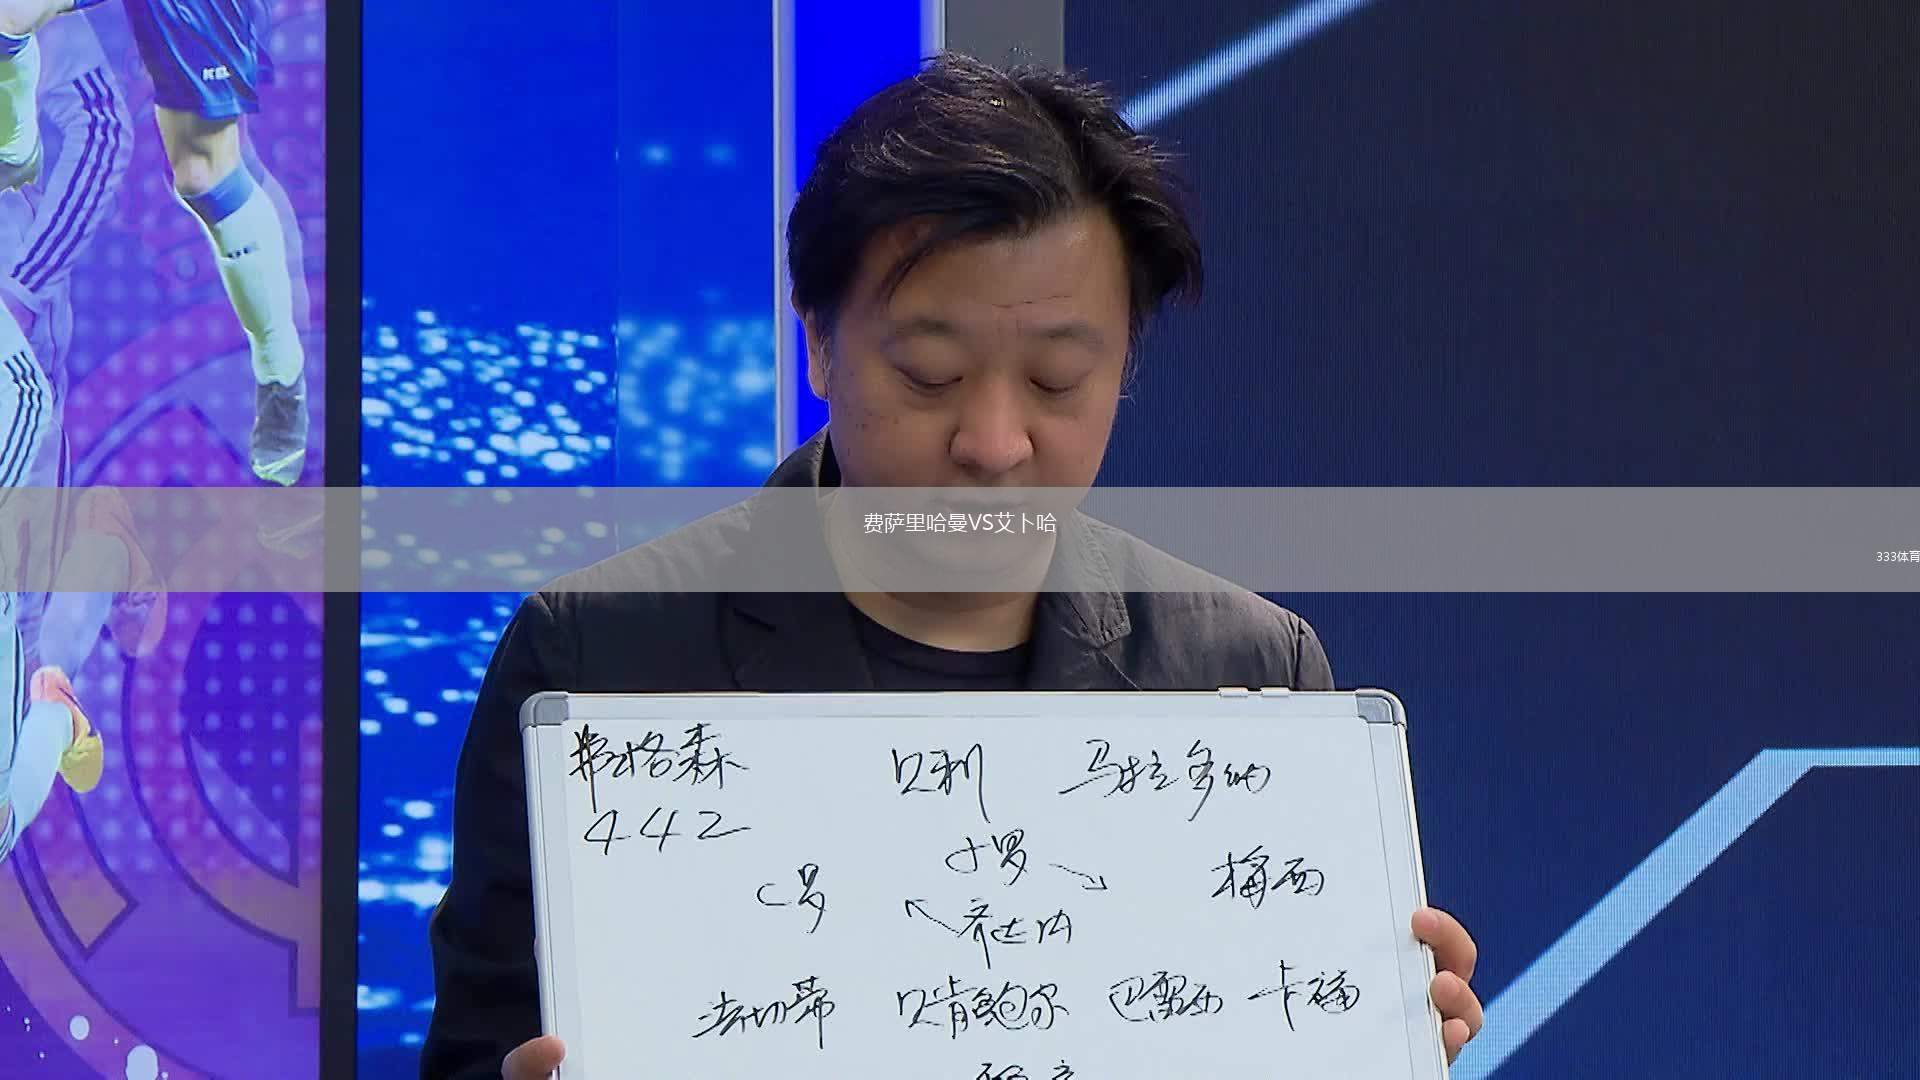 费萨里哈曼VS艾卜哈
333体育
弗格森 贝利 马拉多纳
442
小罗
C罗 梅西
齐达内
法切蒂 贝肯鲍尔 巴雷西 卡福